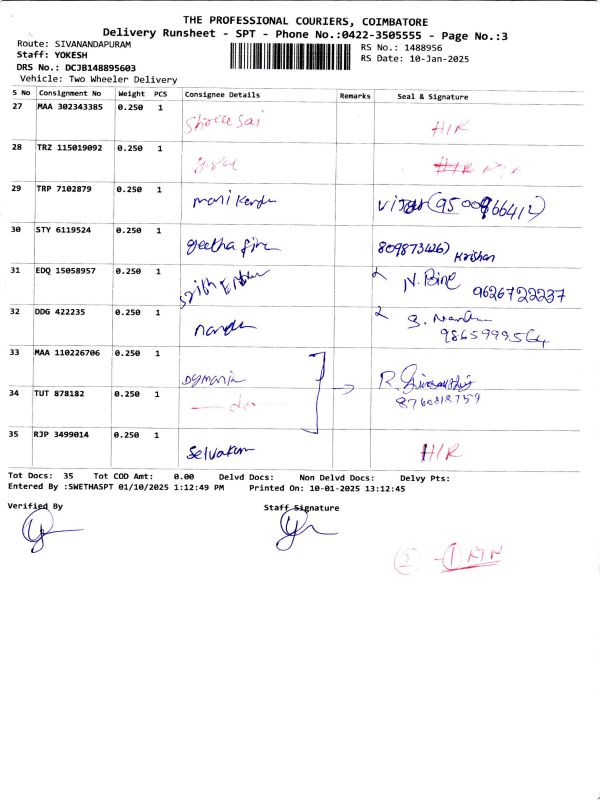 THE PROFESSIONAL COURIERS, COIMBATORE
Delivery Runsheet - SPT - Phone No.:0422-3505555 - Page No.:3
Route: SIVANANDAPURAM
RS No.: 1488956
Staff: YOKESH
RS Date: 10-Jan-2025
DRS No.: DCJB148895603
Vehicle: Two Wheeler Delivery
S No Consignment No Weight PCS Consignee Details Remarks Seal & Signature
27 MAA 302343385 0.250 1 Shree Sai H/R
28 TRZ 115019092 0.250 1 H/R
29 TRP 7102879 0.250 1 manikandn
30 STY 6119524 0.250 1 geetha Krishan
31 EDQ 15058957 0.250 1 N. 9626722237
32 DDG 422235 0.250 1 nandn S. Nandn
9865999564
33 MAA 110226706 0.250 1 R.
8760818759
34 TUT 878182 0.250 1 -do-
35 RJP 3499014 0.250 1 Selvakum H/R
Tot Docs: 35 Tot COD Amt: 0.00 Delvd Docs: Non Delvd Docs: Delvy Pts:
Entered By :SWETHASPT 01/10/2025 1:12:49 PM Printed On: 10-01-2025 13:12:45
Verified By Staff Signature
2 - 1 RTN